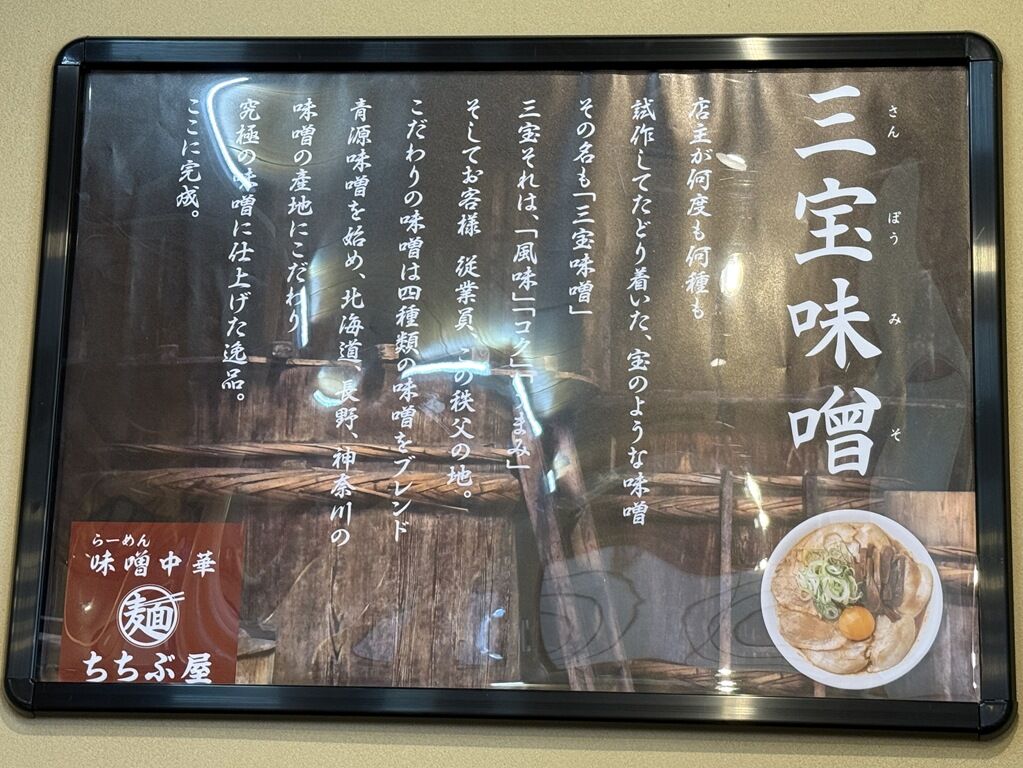 三宝味噌
さんぼうみそ
店主が何度も何種も
試作してたどり着いた、宝のような味噌
その名も「三宝味噌」
三宝それは、「風味」「コク」「うまみ」
そしてお客様 従業員 この秩父の地。
こだわりの味噌は四種類の味噌をブレンド
青源味噌を始め、北海道、長野、神奈川の
味噌の産地にこだわり
究極の味噌に仕上げた逸品。
ここに完成。
らーめん
味噌中華
麺
ちちぶ屋